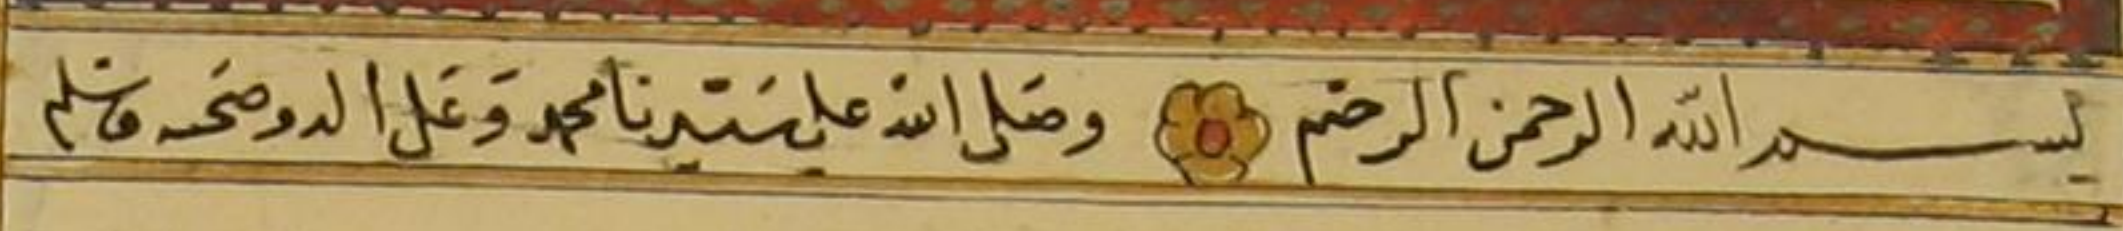 بسم الله الرحمن الرحيم وصلى الله على سيدنا محمد وعلى اله وصحبه وسلم